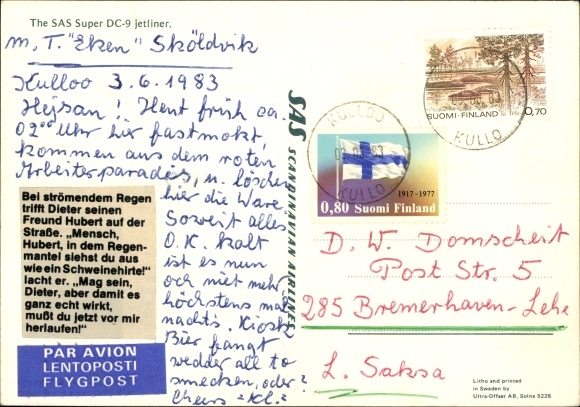 The SAS Super DC-9 jetliner.
m. T. "Eken" Sköldvik
Kulloo 3.6.1983
Hejsan! Heut früh ca.
02⁰⁰ Uhr hier fastmokt,
kommen aus dem roten
Arbeiterparadies, u. löschen
hier die Ware
Soweit alles
O.K. kalt
ist es nun
och nicht mehr
höchstens mal
nachts. Kiosk
Bier fangt
wedder all to
smecken, oder?
Cheers
Bei strömendem Regen
trifft Dieter seinen
Freund Hubert auf der
Straße. „Mensch,
Hubert, in dem Regen-
mantel siehst du aus
wie ein Schweinehirte!"
lacht er. „Mag sein,
Dieter, aber damit es
ganz echt wirkt,
mußt du jetzt vor mir
herlaufen!"
PAR AVION
LENTOPOSTI
FLYGPOST
SAS SCANDINAVIAN AIRLINES
KULLOO
KULLO
SUOMI-FINLAND
0,70
KULLO
1917-1977
0,80 Suomi Finland
D. W. Domscheit
Post Str. 5
285 Bremerhaven-Lehe
L. Saksa
Litho and printed
in Sweden by
Ultra-Offset AB, Solna 5226